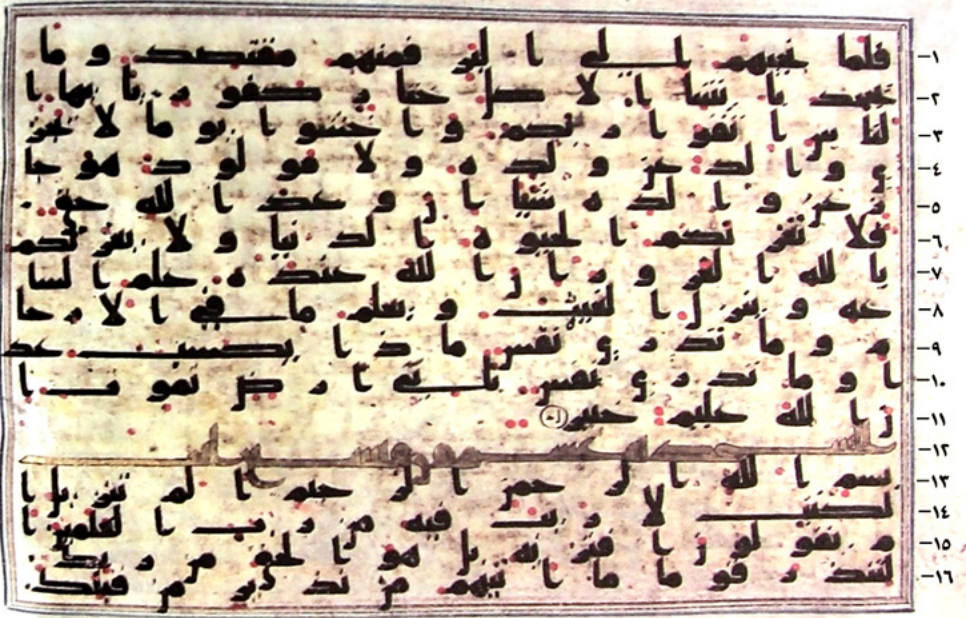 ١- فلما نجيهم ا لى ا لبر فمنهم مقتصد و ما
٢- يجحد با يتنا ا لا كل ختا ر كفو ر يا يها ا
٣- لنا س ا تقو ا ر بكم و ا خشو ا يو ما لا يجز
٤- ي و ا لد عن و لد ه و لا مو لو د هو جا
٥- ز عن و ا لد ه شيا ا ن و عد ا لله حق
٦- فلا تغر نكم ا لحيو ة ا لد نيا و لا يغر نكم
٧- با لله ا لغر و ر ا ن ا لله عند ه علم ا لسا
٨- عة و ينز ل ا لغيث و يعلم ما في ا لا ر حا
٩- م و ما تد ر ي نفس ما ذ ا تكسب غد
١٠- ا و ما تد ر ي نفس با ي ا ر ض تمو ت ا
١١- ن ا لله عليم خبير
١٢-
١٣- بسم ا لله ا لر حمن ا لر حيم ا لم تنز يل ا
١٤- لكتب لا ر يب فيه من ر ب ا لعلمين ا
١٥- م يقو لو ن ا فتر يه بل هو ا لحق من ر بك
١٦- لتنذ ر قو ما ما ا تيهم من نذ ير من قبلك